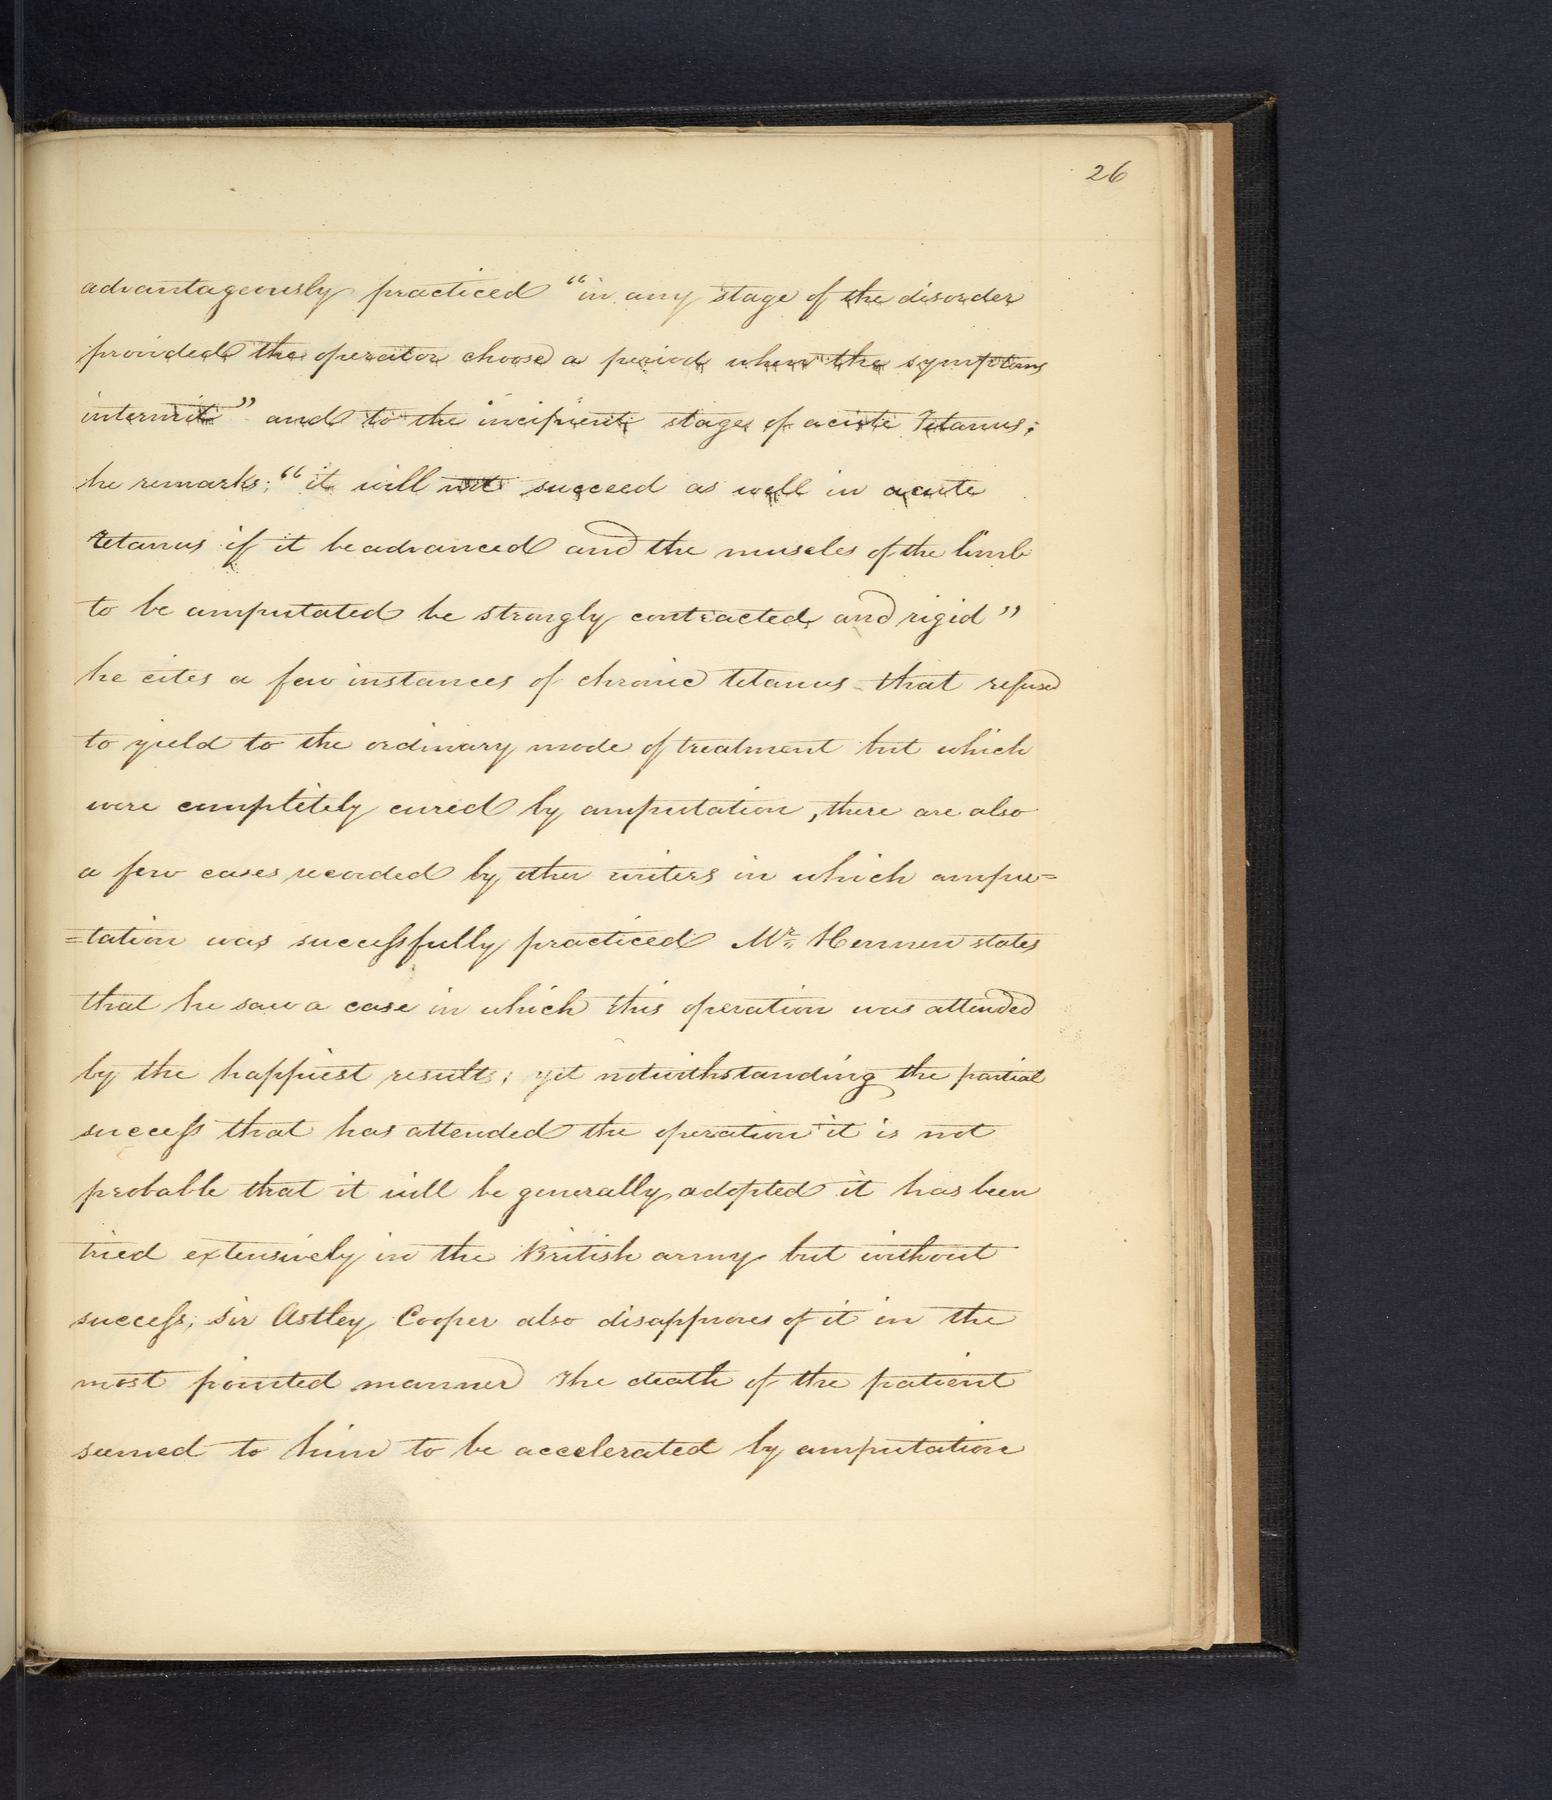 26
advantageously practiced "in any stage of the disorder
provided the operator choose a period when the symptoms
intermit" and to the incipient stage of acute Tetanus;
he remarks; "it will not succeed as well in acute
Tetanus if it be advanced and the muscles of the limb
to be amputated be strongly contracted and rigid"
he cites a few instances of chronic tetanus that refused
to yield to the ordinary mode of treatment but which
were completely cured by amputation, there are also
a few cases recorded by other writers in which ampu=
=tation was successfully practiced Mr. Hennen states
that he saw a case in which this operation was attended
by the happiest results; yet notwithstanding the partial
success that has attended the operation it is not
probable that it will be generally adopted it has been
tried extensively in the British army but without
success; sir Astley Cooper also disapproves of it in the
most pointed manner The death of the patient
seemed to him to be accelerated by amputation